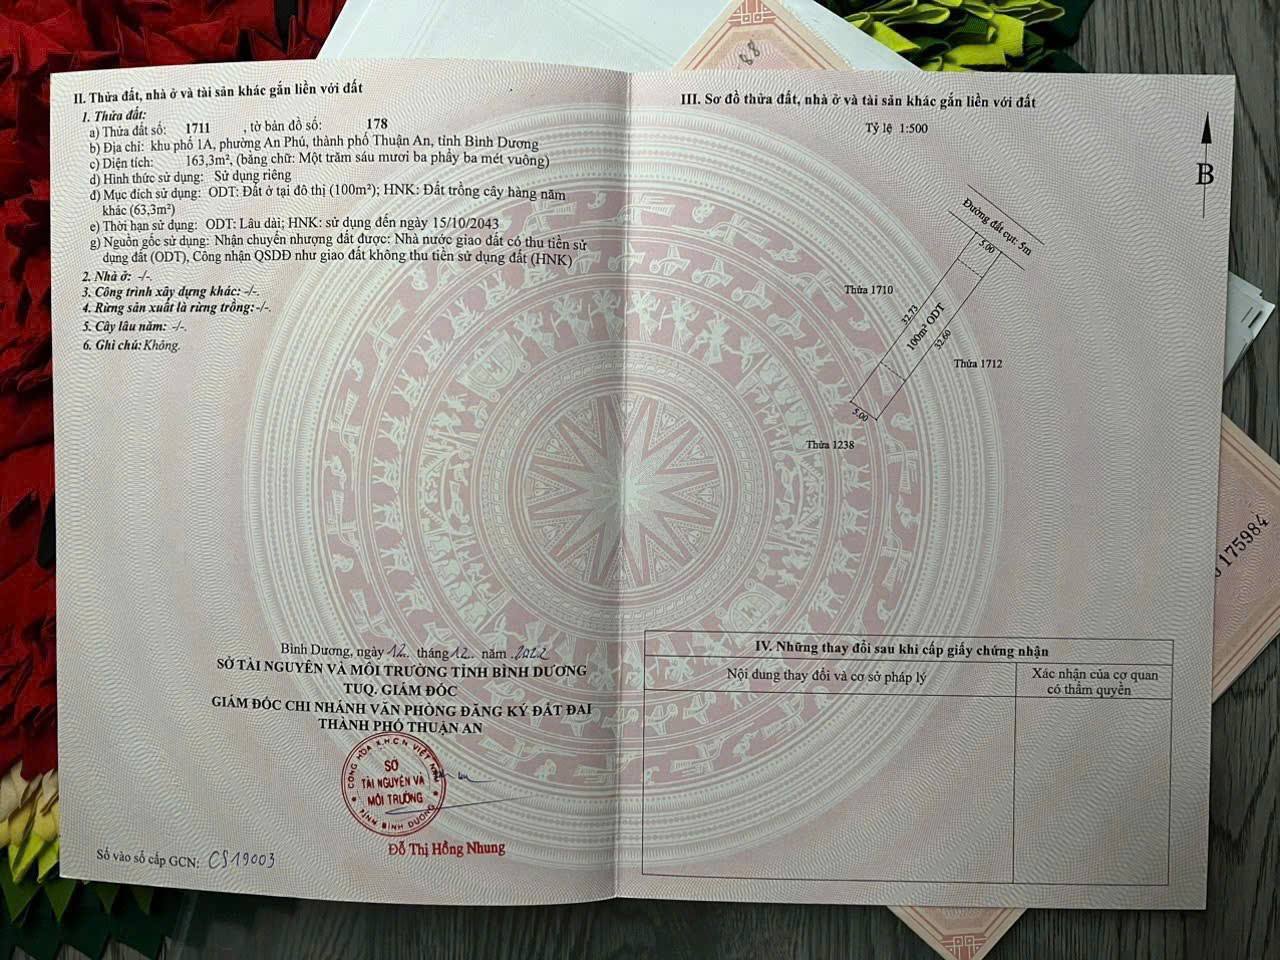 II. Thửa đất, nhà ở và tài sản khác gắn liền với đất
1. Thửa đất:
a) Thửa đất số: 1711 , tờ bản đồ số: 178
b) Địa chỉ: khu phố 1A, phường An Phú, thành phố Thuận An, tỉnh Bình Dương
c) Diện tích: 163,3m², (bằng chữ: Một trăm sáu mươi ba phẩy ba mét vuông)
d) Hình thức sử dụng: Sử dụng riêng
đ) Mục đích sử dụng: ODT: Đất ở tại đô thị (100m²); HNK: Đất trồng cây hàng năm
khác (63,3m²)
e) Thời hạn sử dụng: ODT: Lâu dài; HNK: sử dụng đến ngày 15/10/2043
g) Nguồn gốc sử dụng: Nhận chuyển nhượng đất được: Nhà nước giao đất có thu tiền sử
dụng đất (ODT), Công nhận QSDĐ như giao đất không thu tiền sử dụng đất (HNK)
2. Nhà ở: -/-.
3. Công trình xây dựng khác: -/-.
4. Rừng sản xuất là rừng trồng: -/-.
5. Cây lâu năm: -/-.
6. Ghi chú: Không.
Bình Dương, ngày 12 tháng 12 năm 2022
SỞ TÀI NGUYÊN VÀ MÔI TRƯỜNG TỈNH BÌNH DƯƠNG
TUQ. GIÁM ĐỐC
GIÁM ĐỐC CHI NHÁNH VĂN PHÒNG ĐĂNG KÝ ĐẤT ĐAI
THÀNH PHỐ THUẬN AN
CỘNG HÒA X.H.C.N VIỆT NAM
SỞ
TÀI NGUYÊN VÀ
MÔI TRƯỜNG
TỈNH BÌNH DƯƠNG
Đỗ Thị Hồng Nhung
Số vào sổ cấp GCN: CS19003
III. Sơ đồ thửa đất, nhà ở và tài sản khác gắn liền với đất
Tỷ lệ 1:500
B
Đường đất cụt: 5m
5.00
Thửa 1710
32.73
100m² ODT
32.60
Thửa 1712
5.00
Thửa 1238
IV. Những thay đổi sau khi cấp giấy chứng nhận
Nội dung thay đổi và cơ sở pháp lý
Xác nhận của cơ quan
có thẩm quyền
88
175984